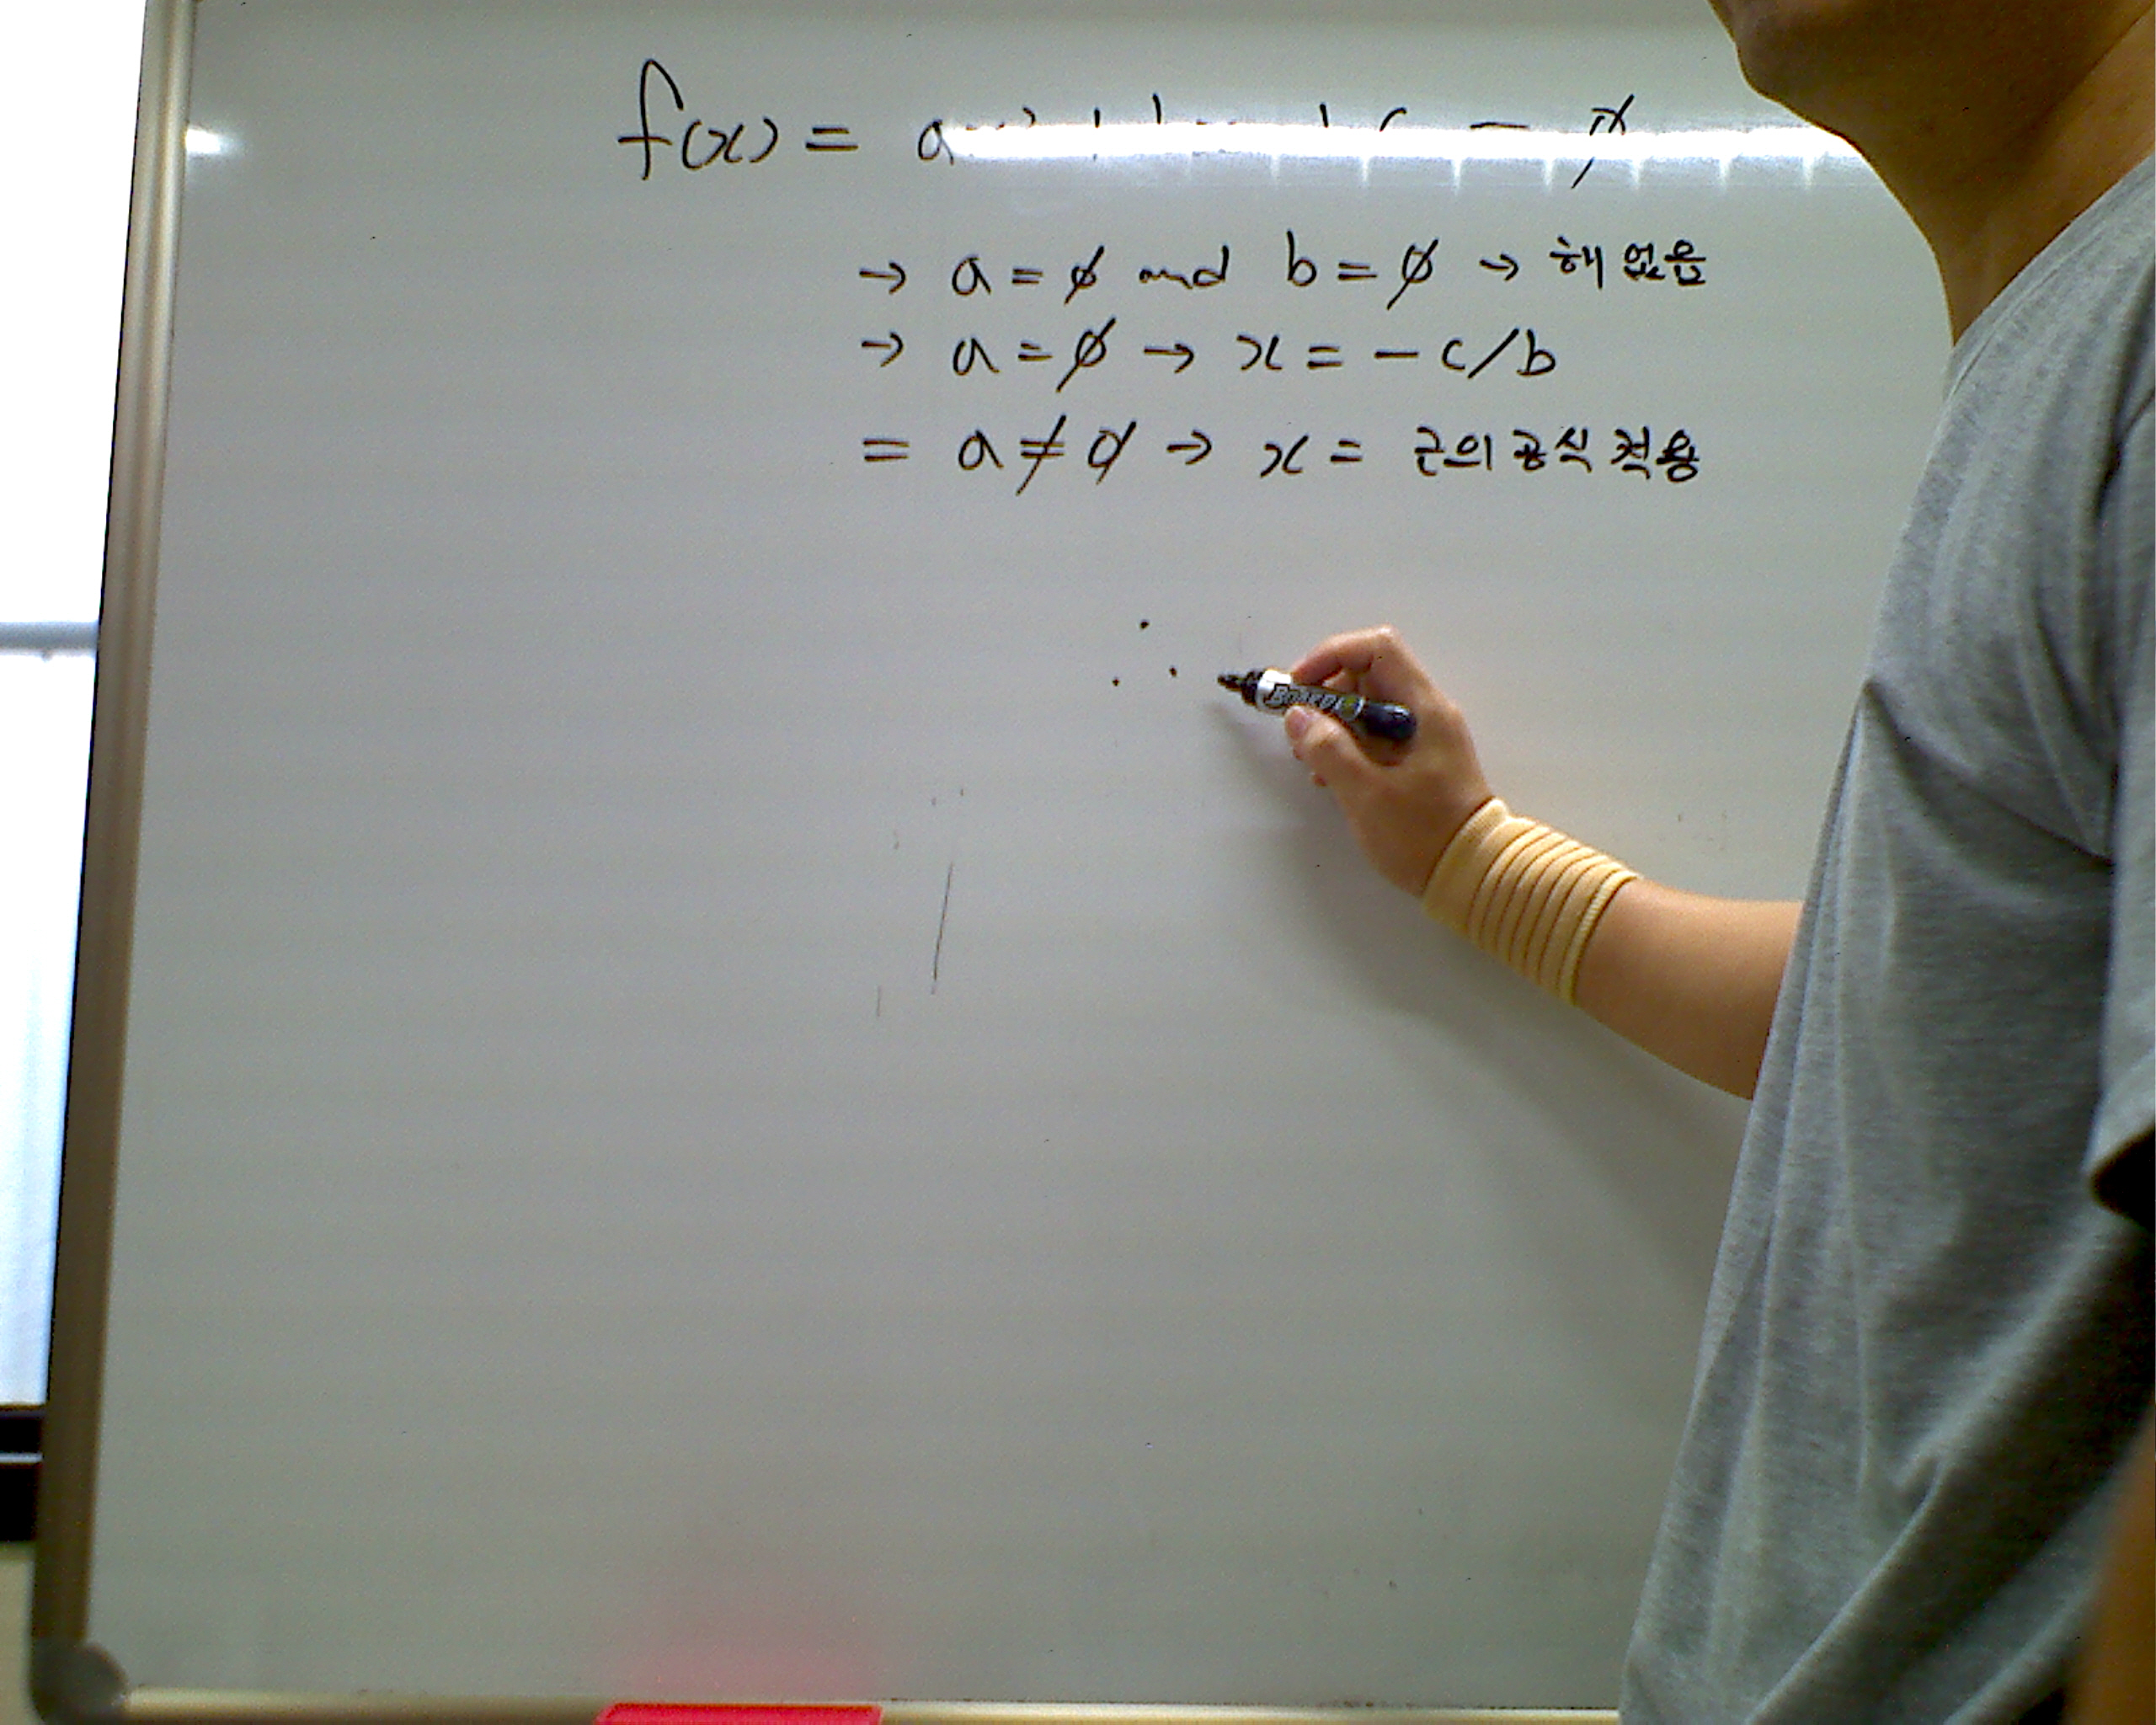 f(x) = a
→ a = ∅ and b = ∅ → 해 없음
→ a = ∅ → x = - c/b
= a ≠ ∅ → x = 근의 공식 적용